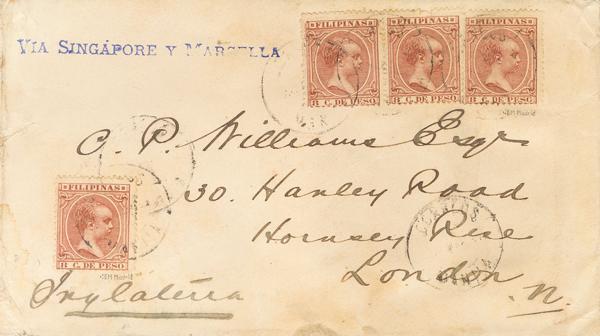 VIA SINGAPORE Y MARSELLA
FILIPINAS FILIPINAS FILIPINAS
8 C. DE PESO 8 C. DE PESO 8 C. DE PESO
C. P. Williams Esqr
30. Hanley Road
Hornsey Rise
London. N.
Inglaterra
FILIPINAS
8 C. DE PESO
CORREOS